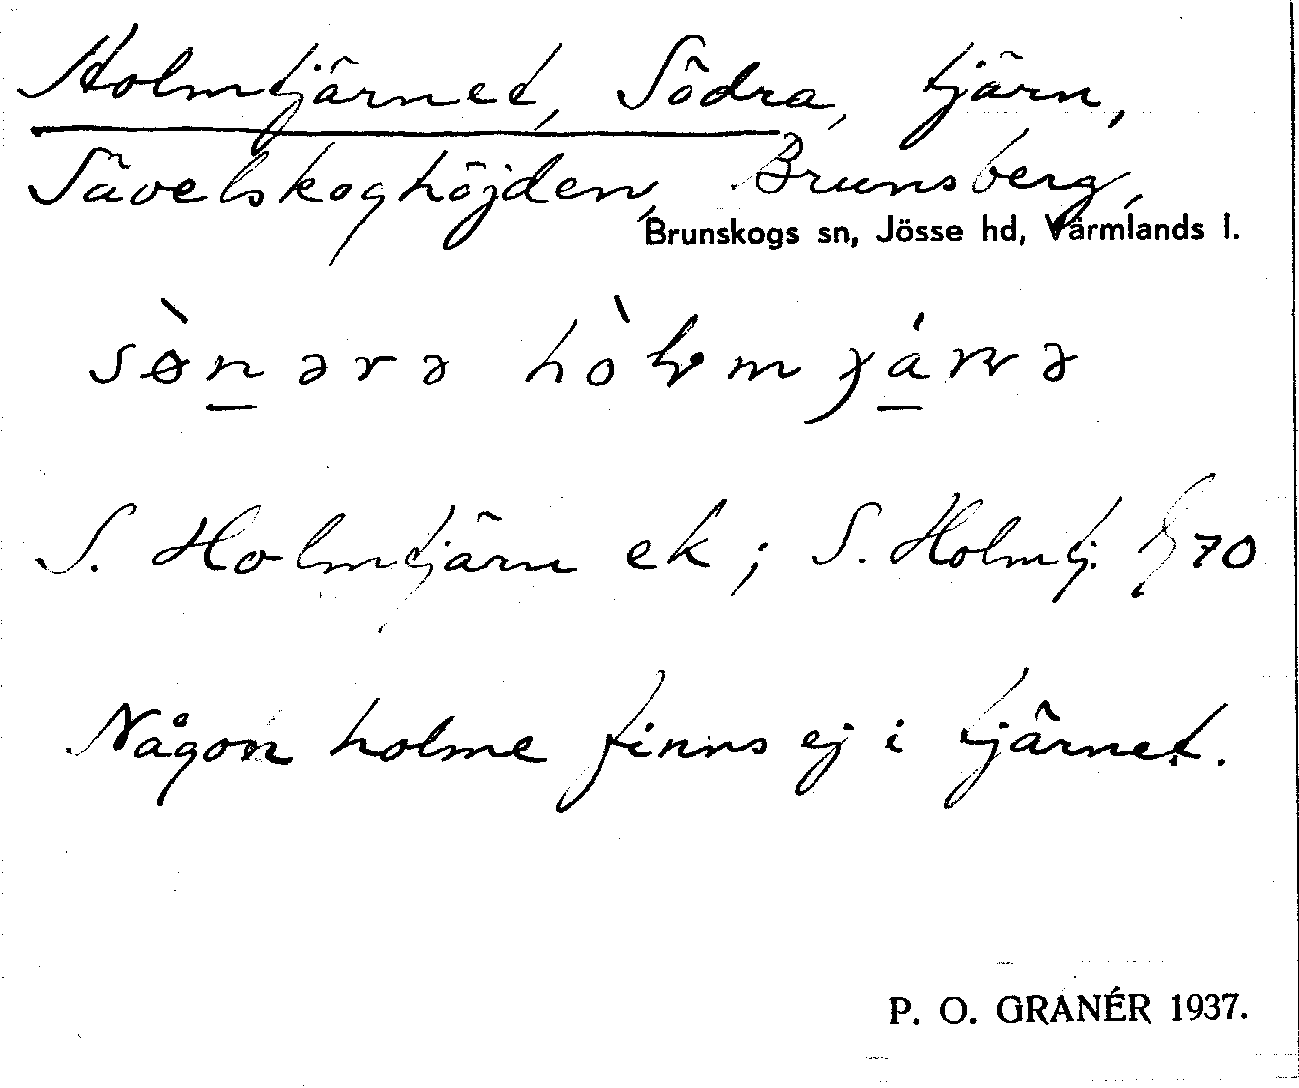 Holmtjärnet, Södra, tjärn,
Sävelskoghöjden, Brunsberg,
Brunskogs sn, Jösse hd, Värmlands l.
S. Holmtjärn ek; S. Holmtj. 70
Någon holme finns ej i tjärnet.
P. O. GRANÉR 1937.